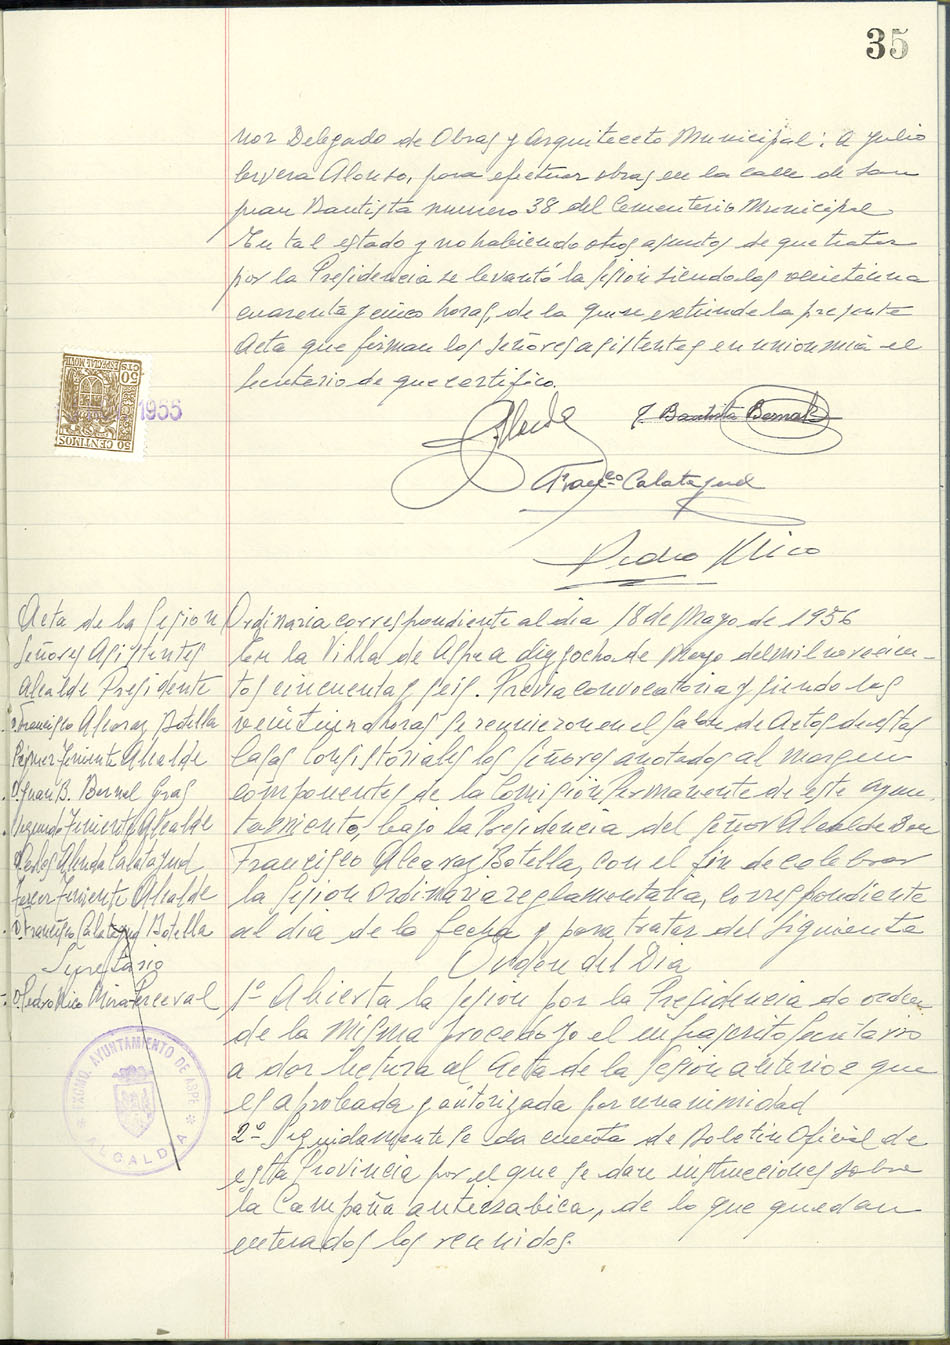 35
nor Delegado de Obras y Arquitecto Municipal: A Julio
Cervera Alonso, para efectuar obras en la calle de San
Juan Bautista numero 38 del Cementerio Municipal
En tal estado y no habiendo otros asuntos de que tratar
por la Presidencia se levantó la sesion siendo las veintiuna
cuarenta y cinco horas, de la que se extiende la presente
Acta que firman los Señores asistentes en union mia el
Secretario de que certifico.
50 CTS
ESPECIAL MOVIL
50 CENTIMOS
1955
J. Bautista Bernal
Franco Calatayud
Pedro Rico
Acta de la Sesion Ordinaria correspondiente al dia 18 de Mayo de 1956
Señores Asistentes
Alcalde Presidente
D. Francisco Alcaraz Botella
Primer Teniente Alcalde
D. Juan B. Bernal Gras
Segundo Teniente Alcalde
D. Carlos Calatayud
Tercer Teniente Alcalde
D. Francisco Calatayud Botella
Secretario
D. Pedro Rico Mira-Perceval
EXCMO. AYUNTAMIENTO DE ASPE
ALCALDIA
En la Villa de Aspe a dieziocho de Mayo del mil novecien-
tos cincuenta y seis. Previa convocatoria y siendo las
veintiuna horas se reunieron en el Salon de Actos de estas
Casas Consistoriales los Señores anotados al margen
componentes de la Comision Permanente de este ayun-
tamiento, bajo la Presidencia del Señor Alcalde Don
Francisco Alcaraz Botella, con el fin de celebrar
la sesion ordinaria reglamentaria, correspondiente
al dia de la fecha y para tratar del siguiente
Orden del Dia
1º Abierta la sesion por la Presidencia de orden
de la misma procedo yo el infrascrito Secretario
a dar lectura al Acta de la sesion anterior que
es aprobada y autorizada por unanimidad
2º Seguidamente se da cuenta de Boletin Oficial de
esta Provincia por el que se dan instrucciones sobre
la Campaña antirrabica, de lo que quedan
enterados los reunidos.